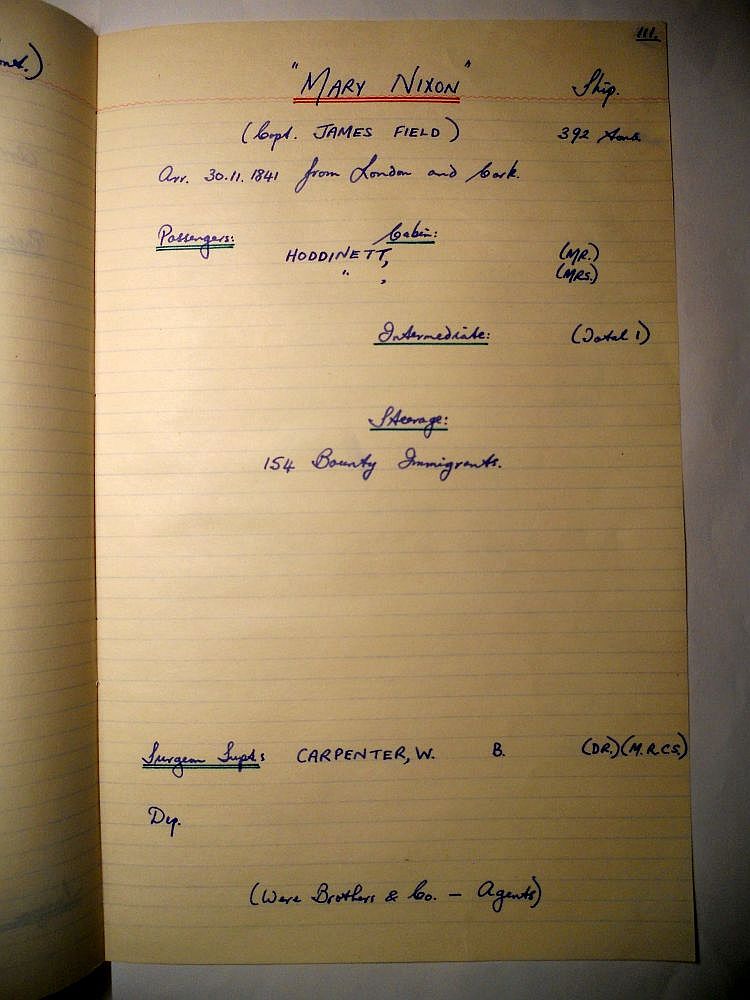 111.
"MARY NIXON" Ship.
(Capt. JAMES FIELD) 392 tons
Arr. 30.11.1841 from London and Cork.
Passengers: Cabin:
HODDINETT, (MR.)
" , (MRS.)
Intermediate: (Total 1)
Steerage:
154 Bounty Immigrants.
Surgeon Supt: CARPENTER, W. B. (DR.) (M.R.C.S)
Dy.
(Were Brothers & Co. — Agents)